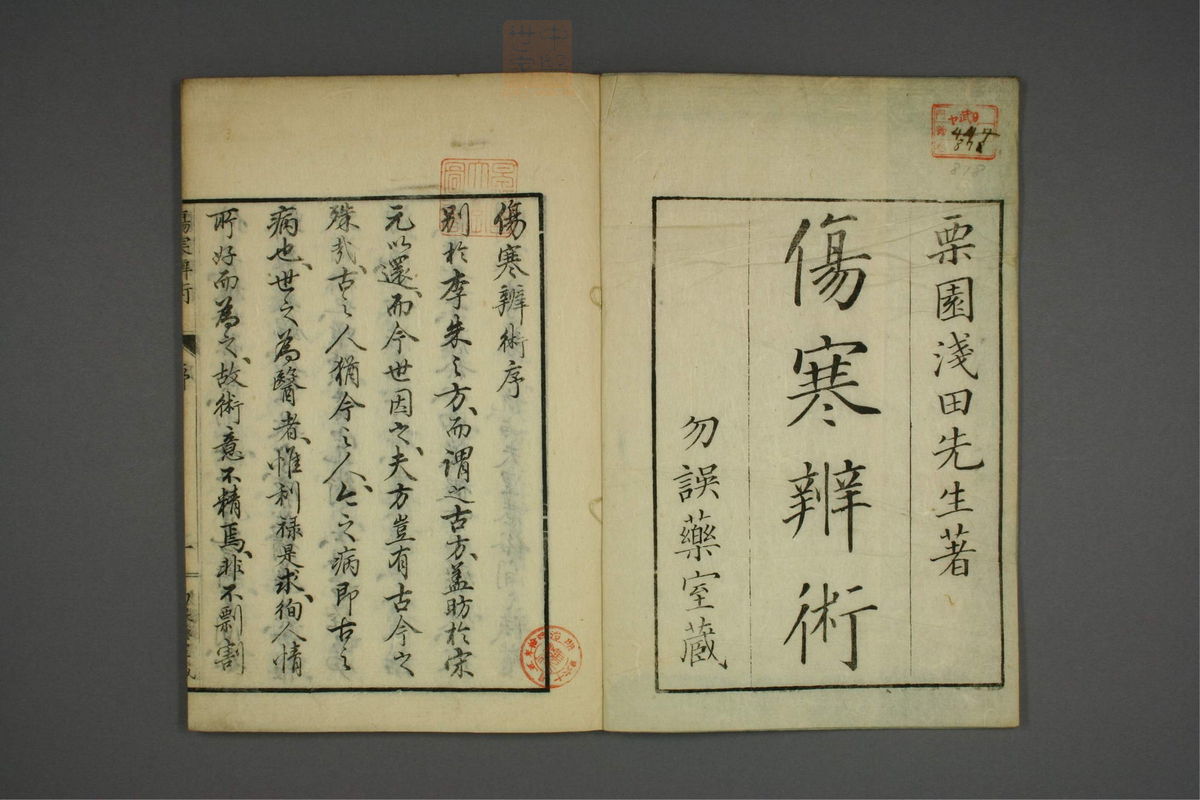 栗園淺田先生著
傷寒辨術
勿誤藥室蔵
傷寒辨術序
别於李朱之方、而謂之古方、蓋昉於宋
元以還、而今世因之、夫方豈有古今之
殊哉、古之人猶今之人、今之病即古之
病也、世之為醫者、惟利祿是求、徇人情
所好而為之、故術意不精焉、非不剽割
傷寒辨術
序